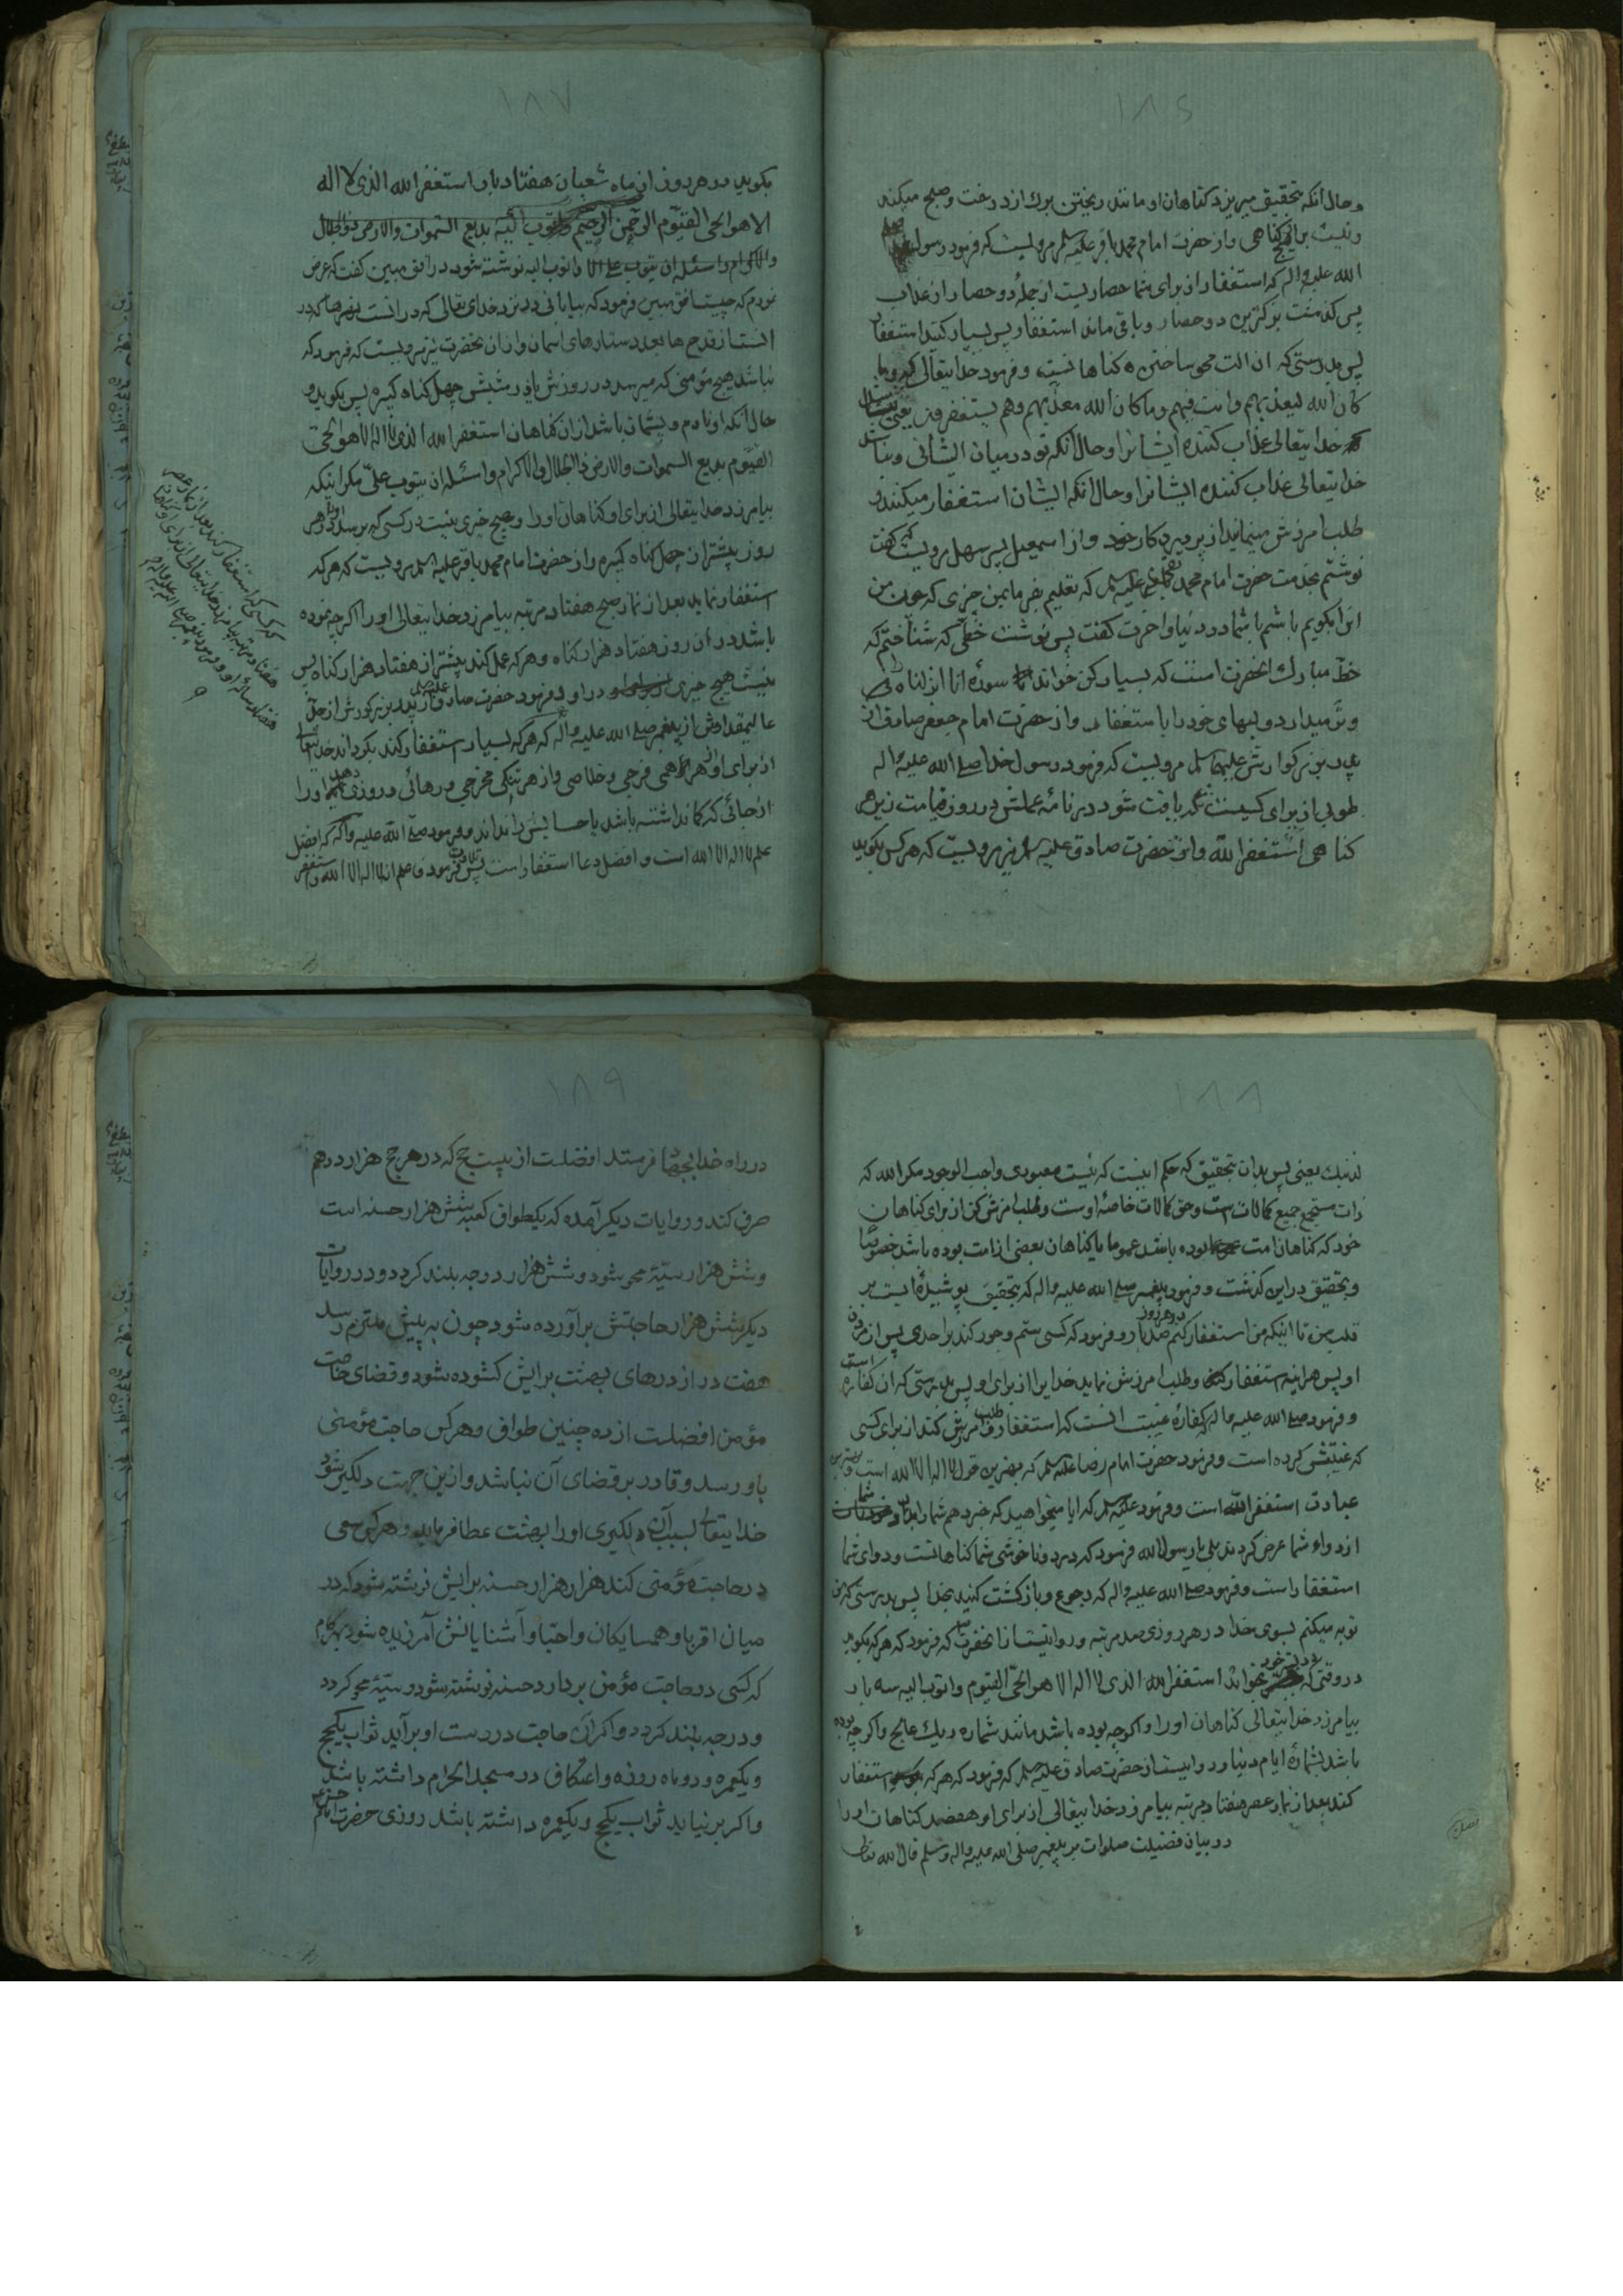 ۱۸۶
وحال آنکه بتحقیق میریزد کناهان او مانند ریختن برك از درخت وصبح میکند
ونیست براو هیچ کناهی واز حضرت امام محمد باقر علیه سلم مرویست که فرمود رسول
الله علیه واله که استغفار از برای شما حصاریست از جملهٔ دو حصار از عذاب
پس کذشت بزرکترین دو حصار وباقی ماند استغفار پس بسیار کنید استغفار
پس بدرستی که ان الت محو ساختن کناهانست وفرمود خدایتعالی وما
کان الله لیعذبهم وانت فیهم وما کان الله معذبهم وهم یستغفرون یعنی
خدایتعالی عذاب کننده ایشانرا وحال آنکه تو در میان ایشانی ونباشد
خدایتعالی عذاب کننده ایشانرا وحال آنکه ایشان استغفار میکنند و
طلب امرزش مینمایند از پروردکار خود واز اسمعیل پسر سهل مرویست که کفت
نوشتم بخدمت حضرت امام محمد تقی علیه سلم که تعلیم بفرما بمن چیزی که چون من
انرا بکویم باشم با شما در دنیا واخرت کفت پس نوشت خطّی که شناختم که
خطّ مبارك انحضرت است که بسیار کن خواندن سورهٔ انا انزلناه
وتر میدار دو لبهای خود را باستغفار واز حضرت امام جعفر صادق از
پدر بزرکوارش علیهما سلم مرویست که فرمود رسول خدا صلی الله علیه واله
طوبی از برای کسیست که یافت شود در نامهٔ عملش در روز قیامت زیر هر
کناهی استغفر الله واز حضرت صادق علیه سلم نیز مرویست که هرکس بکوید
۱۸۷
بکوید در هر روز از ماه شعبان هفتاد بار استغفر الله الذی لا اله
الا هو الحی القیّوم الرحمن الرحیم واتوب الیه بدیع السموات والارض ذو الجلال
والاکرام واسئله ان یتوب علی واتوب الیه نوشته شود در افق مبین کفت که عرض
نمودم که چیست افق مبین فرمود که بیابانی در نزد خدای تعالی که در انست نهرها که در
انست از قدح ها بعدد ستارهای اسمان واز ان حضرت نیز مرویست که فرمود که
نباشد هیچ مؤمنی که میرسد در روزش یا در شبش چهل کناه کبیره پس بکوید و
حال آنکه او نادم وپشیمان باشد از ان کناهان استغفر الله الذی لا اله الا هو الحی
القیّوم بدیع السموات والارض ذا الجلال والاکرام واسئله ان یتوب علیّ مکر اینکه
بیامرزد خدایتعالی از برای او کناهان او را وهیچ خیری نیست در کسی که برسد در هر
روز بیشتر از چهل کناه کبیره واز حضرت امام محمد باقر علیه سلم مرویست که هر که
استغفار نماید بعد از نماز صبح هفتاد مرتبه بیامرزد خدایتعالی او را اکرچه نموده
باشد در ان روز هفتاد هزار کناه وهرکه عمل کند بیشتر از هفتاد هزار کناه پس
نیست هیچ خیری در او وفرمود حضرت صادق علیه سلم از پدر بزرکوارش از جدّ
عالیمقدارش از پیغمبر صلی الله علیه واله که هرکه بسیار استغفار کند بکرداند خدایتعالی
از برای او از هر همّی فرجی وخلاصی واز هر تنکی مخرجی ورهائی وروزی دهد او را
از جائی که کمان نداشته باشد یا حسابش را نداند وفرمود صلی الله علیه واله که افضل
علم لا اله الا الله است وافضل دعا استغفار است پس فرمود فاعلم انه لا اله الا الله واستغفر
۱۸۸
لذنبك یعنی پس بدان بتحقیق که حکم اینست که نیست معبودی واجب الوجود مکر الله که
ذات مستجمع جمیع کمالات است وحق کمالات خاصهٔ اوست وطلب امرزش کن از برای کناهان
خود که کناهان امت بوده باشد عموما یا کناهان بعضی از امت بوده باشد خصوصًا
وتحقیق در این کذشت وفرمود پیغمبر صلی الله علیه واله که بتحقیق پوشیدهٔ ایست بر
قلب من تا اینکه من استغفار کنم در هر روز صد بار وفرمود که کسی ستم وجور کند بر احدی پس از مردن
او پس هر اینه استغفار کند وطلب امرزش نماید خدایرا از برای او پس بدرستی که ان کفاره است
وفرمود صلی الله علیه واله که کفارهٔ غیبت انست که استغفار وطلب امرزش کند از برای کسی
که غیبتش کرده است وفرمود حضرت امام رضا علیه سلم که بهترین قول لا اله الا الله است وبهترین
عبادت استغفر الله است وفرمود علیه سلم که ایا میخواهید که خبر دهم شما را بدرد شما
از دواء شما عرض کردند بلی یا رسول الله فرمود که درد وناخوشی شما کناهانست ودوای شما
استغفار است وفرمود صلی الله علیه واله که رجوع وبازکشت کنید بخدا پس بدرستی که من
توبه میکنم بسوی خدا در هر روزی صد مرتبه وروایتست از انحضرت که فرمود که هرکه بکوید
در وقتی که بخوابد استغفر الله الذی لا اله الا هو الحیّ القیّوم واتوب الیه سه بار
بیامرزد خدایتعالی کناهان او را واکرچه بوده باشد مانند شماره ریك عالج واکرچه بوده
باشد بشمارهٔ ایام دنیا وروایتست از حضرت صادق علیه سلم که فرمود که هر که استغفار
کند بعد از نماز عصر هفتاد مرتبه بیامرزد خدایتعالی از برای او هفصد کناهان او را
در بیان فضیلت صلوات بر پیغمبر صلی الله علیه واله وسلم قال الله تعالی
۱۸۹
در راه خدا بجهاد فرستد افضلست از بیست حج که در هر حج هزار درهم
صرف کند ودر روایات دیکر آمده که بیکطواف کعبه شش هزار حسنه است
وشش هزار سیّئه محو شود وشش هزار درجه بلند کردد ودر روایات
دیکر شش هزار حاجتش برآورده شود وچون به پیش ملتزم رسد
هفت در از درهای بهشت برایش کشوده شود وقضای حاجت
مؤمن افضلست از ده چنین طواف وهرکس حاجت مؤمنی
باو رسد وقادر بر قضای آن نباشد وازین جهت دلکیر شود
خدایتعالی بسبب آن دلکیری او را بهشت عطا فرماید وهرکس سعی
در حاجت مؤمنی کند هزار هزار حسنه برایش نوشته شود که در
میان اقربا وهمسایکان واحبّا وآشنایانش آمرزیده شود بهر کام
که کسی در حاجت مؤمن بردارد حسنه نوشته شود وسیّئه محو کردد
ودرجه بلند کردد واکر آن حاجت در دست او برآید ثواب یکحج
ویکعمره ودو ماه روزه واعتکاف در مسجد الحرام داشته باشد
واکر برنیاید ثواب یکحج ویکعمره داشته باشد روزی حضرت امام حسن